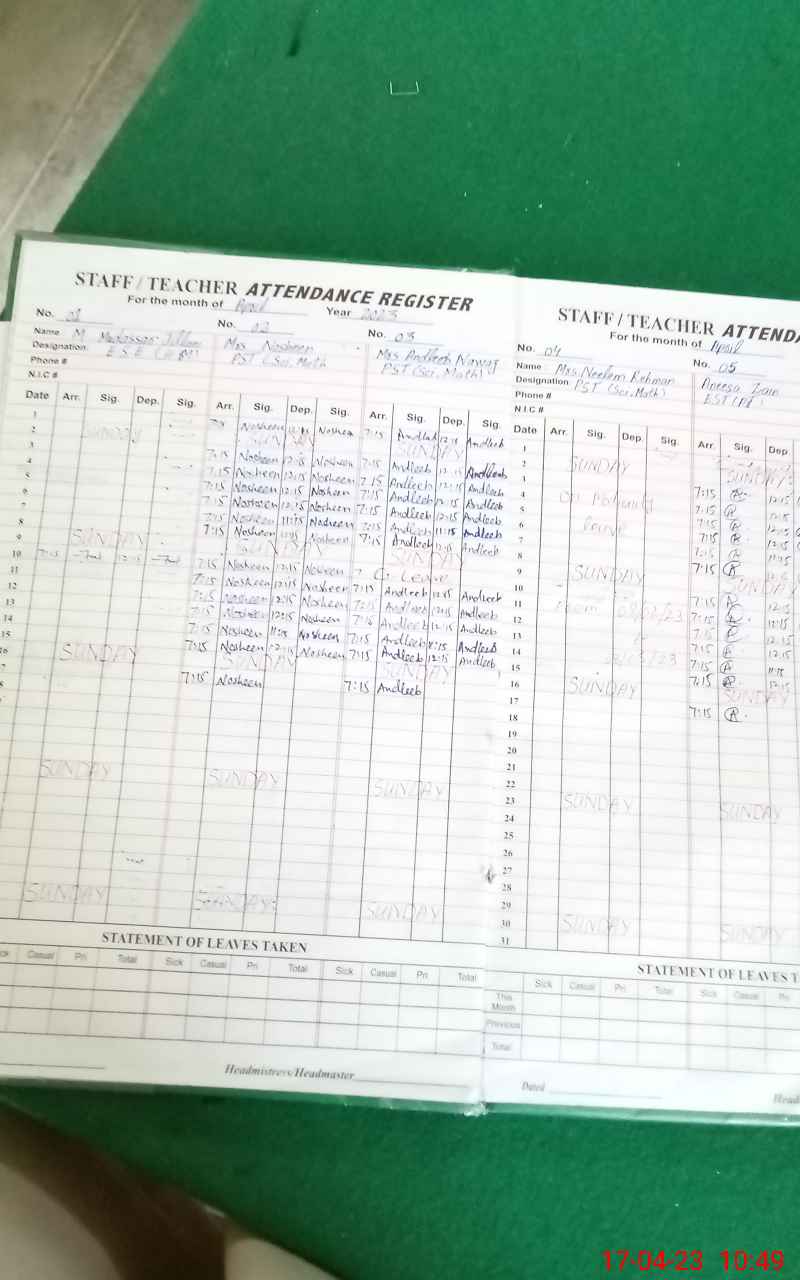 STAFF / TEACHER ATTENDANCE REGISTER
For the month of April Year 2023
No. 01 No. 02 No. 03
Name M. Mrs Nosheen Mrs Andleeb Nawaz
Designation. E.S.E PST (Sci, Math) PST (Sci, Math)
Phone #
N.I.C #
Date Arr. Sig. Dep. Sig. Arr. Sig. Dep. Sig. Arr. Sig. Dep. Sig.
1 Nosheen 12:15 Nosheen 7:15 Andleeb 12:15 Andleeb
2 SUNDAY SUNDAY SUNDAY
3 7:15 Nosheen 12:15 Nosheen 7:15 Andleeb 12:15 Andleeb
4 7:15 Nosheen 12:15 Nosheen 7:15 Andleeb 12:15 Andleeb
5 7:15 Nosheen 12:15 Nosheen 7:15 Andleeb 12:15 Andleeb
6 7:15 Nosheen 12:15 Nosheen 7:15 Andleeb 12:15 Andleeb
7 7:15 Nosheen 11:15 Nosheen 7:15 Andleeb 11:15 Andleeb
8 7:15 Nosheen 12:15 Nosheen 7:15 Andleeb 12:15 Andleeb
9 SUNDAY SUNDAY SUNDAY
10 7:15 12:15 7:15 Nosheen 12:15 Nosheen C. Leave
11 7:15 Nosheen 12:15 Nosheen 7:15 Andleeb 12:15 Andleeb
12 7:15 Nosheen 12:15 Nosheen 7:15 Andleeb 12:15 Andleeb
13 7:15 Nosheen 12:15 Nosheen 7:15 Andleeb 12:15 Andleeb
14 7:15 Nosheen 11:15 Nosheen 7:15 Andleeb 11:15 Andleeb
15 7:15 Nosheen 12:15 Nosheen 7:15 Andleeb 12:15 Andleeb
16 SUNDAY SUNDAY SUNDAY
7:15 Nosheen 7:15 Andleeb
SUNDAY SUNDAY SUNDAY
SUNDAY SUNDAY SUNDAY
STATEMENT OF LEAVES TAKEN
Casual Pri Total Sick Casual Pri Total Sick Casual Pri Total
Headmistress/Headmaster
STAFF / TEACHER ATTENDA
For the month of April
No. 04 No. 05
Name Mrs. Neelem Rehman Aneesa Zain
Designation. PST (Sci, Math) EST
Phone #
N.I.C #
Date Arr. Sig. Dep. Sig. Arr. Sig. Dep
1
2 SUNDAY SUNDAY
3
4 On 7:15 12:15
5 7:15
6 leave 7:15 12:15
7 7:15 12:15
8 7:15
9 SUNDAY SUNDAY
10
11 7:15
12 7:15 12:15
13 7:15 12:15
14 7:15 12:15
15 7:15 12:15
16 SUNDAY SUNDAY
17
18 7:15
19
20
21
22
23 SUNDAY SUNDAY
24
25
26
27
28
29
30 SUNDAY SUNDAY
31
STATEMENT OF LEAVES T
Sick Casual Pri Total Sick Casual Pri
This Month
Previous
Total
Dated Head
17-04-23 10:49